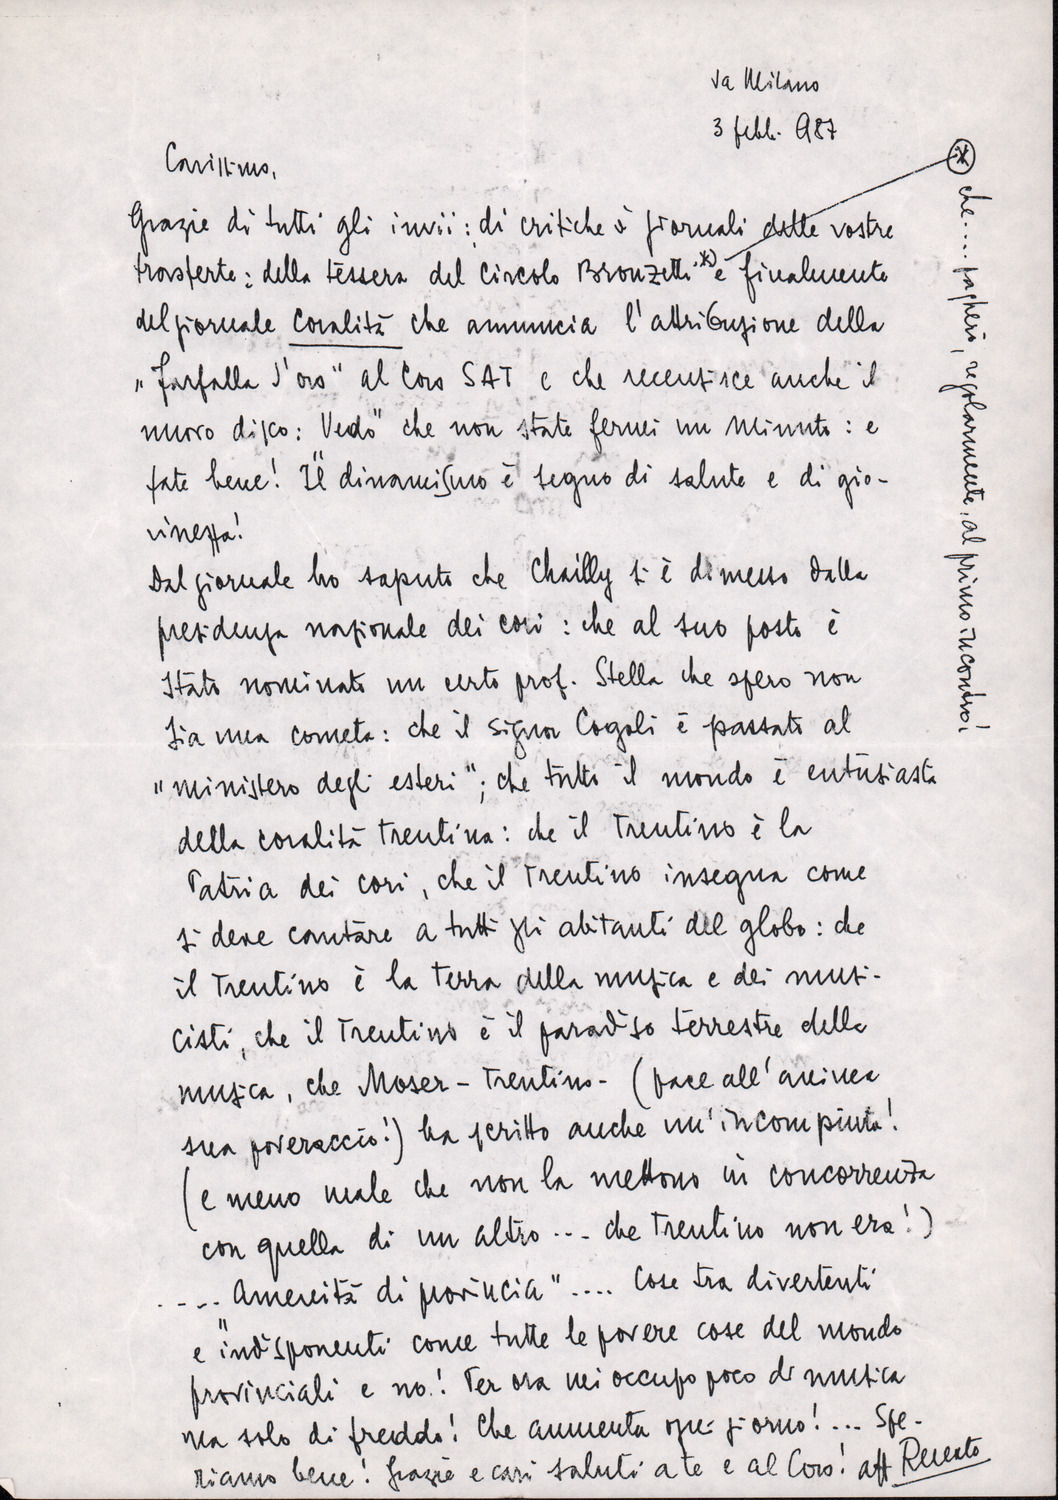 da Milano
3 febb. 987
Carissimo,
Grazie di tutti gli invii: di critiche e giornali delle vostre
trasferte: della tessera del Circolo Bronzetti *) e finalmente
del giornale Coralità che annuncia l'attribuzione della
"Farfalla d'oro" al Coro SAT e che recensisce anche il
nuovo disco: Vedo" che non state fermi un minuto: e
fate bene! Il dinamismo è segno di salute e di gio-
vinezza!
Dal giornale ho saputo che Chailly si è dimesso dalla
presidenza nazionale dei cori: che al suo posto è
stato nominato un certo prof. Stella che spero non
sia una cometa: che il signor Cogoli è passato al
"ministero degli esteri"; che tutto il mondo è entusiasta
della coralità trentina: che il Trentino è la
Patria dei cori, che il Trentino insegna come
si deve cantare a tutti gli abitanti del globo: che
il Trentino è la terra della musica e dei musi-
cisti, che il Trentino è il paradiso terrestre della
musica, che Moser - Trentino - (pace all'anima
sua poveraccio!) ha scritto anche un'incompiuta!
(e meno male che non la mettono in concorrenza
con quella di un altro ... che Trentino non era!)
.... "Amenità di provincia" .... Cose tra divertenti
e indisponenti come tutte le povere cose del mondo
provinciali e no! Per ora mi occupo poco di musica
ma solo di freddo! Che aumenta ogni giorno! ... Spe-
riamo bene! Grazie e cari saluti a te e al Coro! aff Renato
* che .... pagherò, regolarmente, al primo incontro!